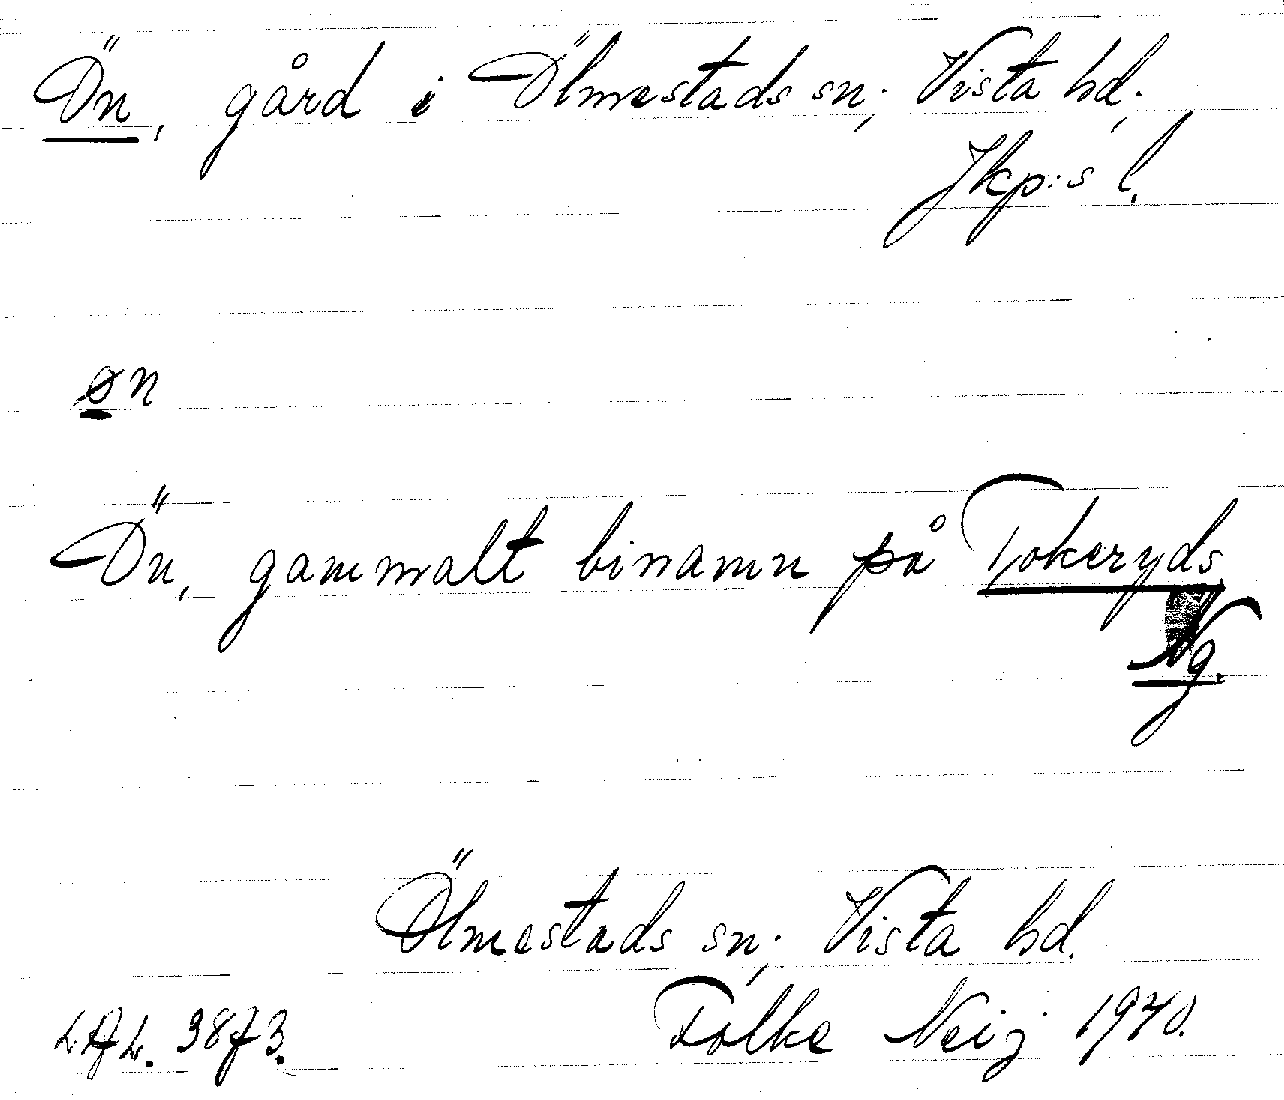 Ön, gård i Ölmestads sn; Vista hd;
Jkp:s l.
øn
Ön, gammalt binamn på Tokeryds
Ng.
Ölmestads sn; Vista hd.
Folke Neij 1940.
LAL. 3873.